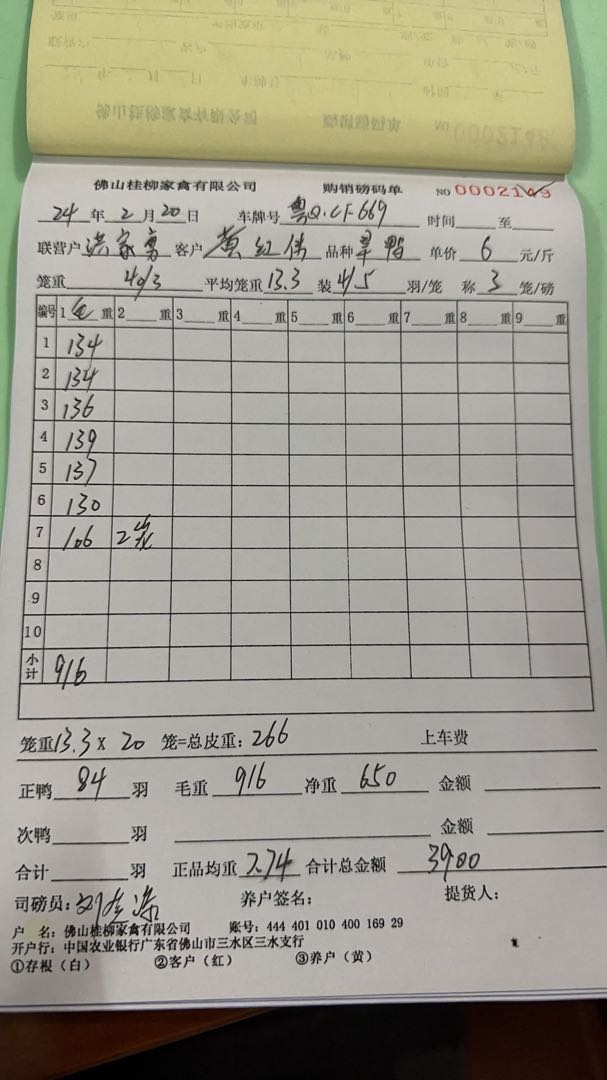 佛山桂柳家禽有限公司 购销磅码单 NO 0002149
24年2月20日 车牌号 粤Q·CF669 时间 至
联营户 洪家勇 客户 黄红伟 品种 旱鸭 单价 6 元/斤
笼重 40/3 平均笼重 13.3 装 4/5 羽/笼 称 3 笼/磅
编号 1 毛 重 2 重 3 重 4 重 5 重 6 重 7 重 8 重 9 重
1 134
2 134
3 136
4 139
5 137
6 130
7 106 2笼
8
9
10
小计 916
笼重 13.3 X 20 笼=总皮重: 266 上车费
正鸭 84 羽 毛重 916 净重 650 金额
次鸭 羽 金额
合计 羽 正品均重 7.74 合计总金额 3900
司磅员: 养户签名: 提货人:
户 名: 佛山桂柳家禽有限公司 账号: 444 401 010 400 169 29
开户行: 中国农业银行广东省佛山市三水区三水支行
①存根（白） ②客户（红） ③养户（黄）